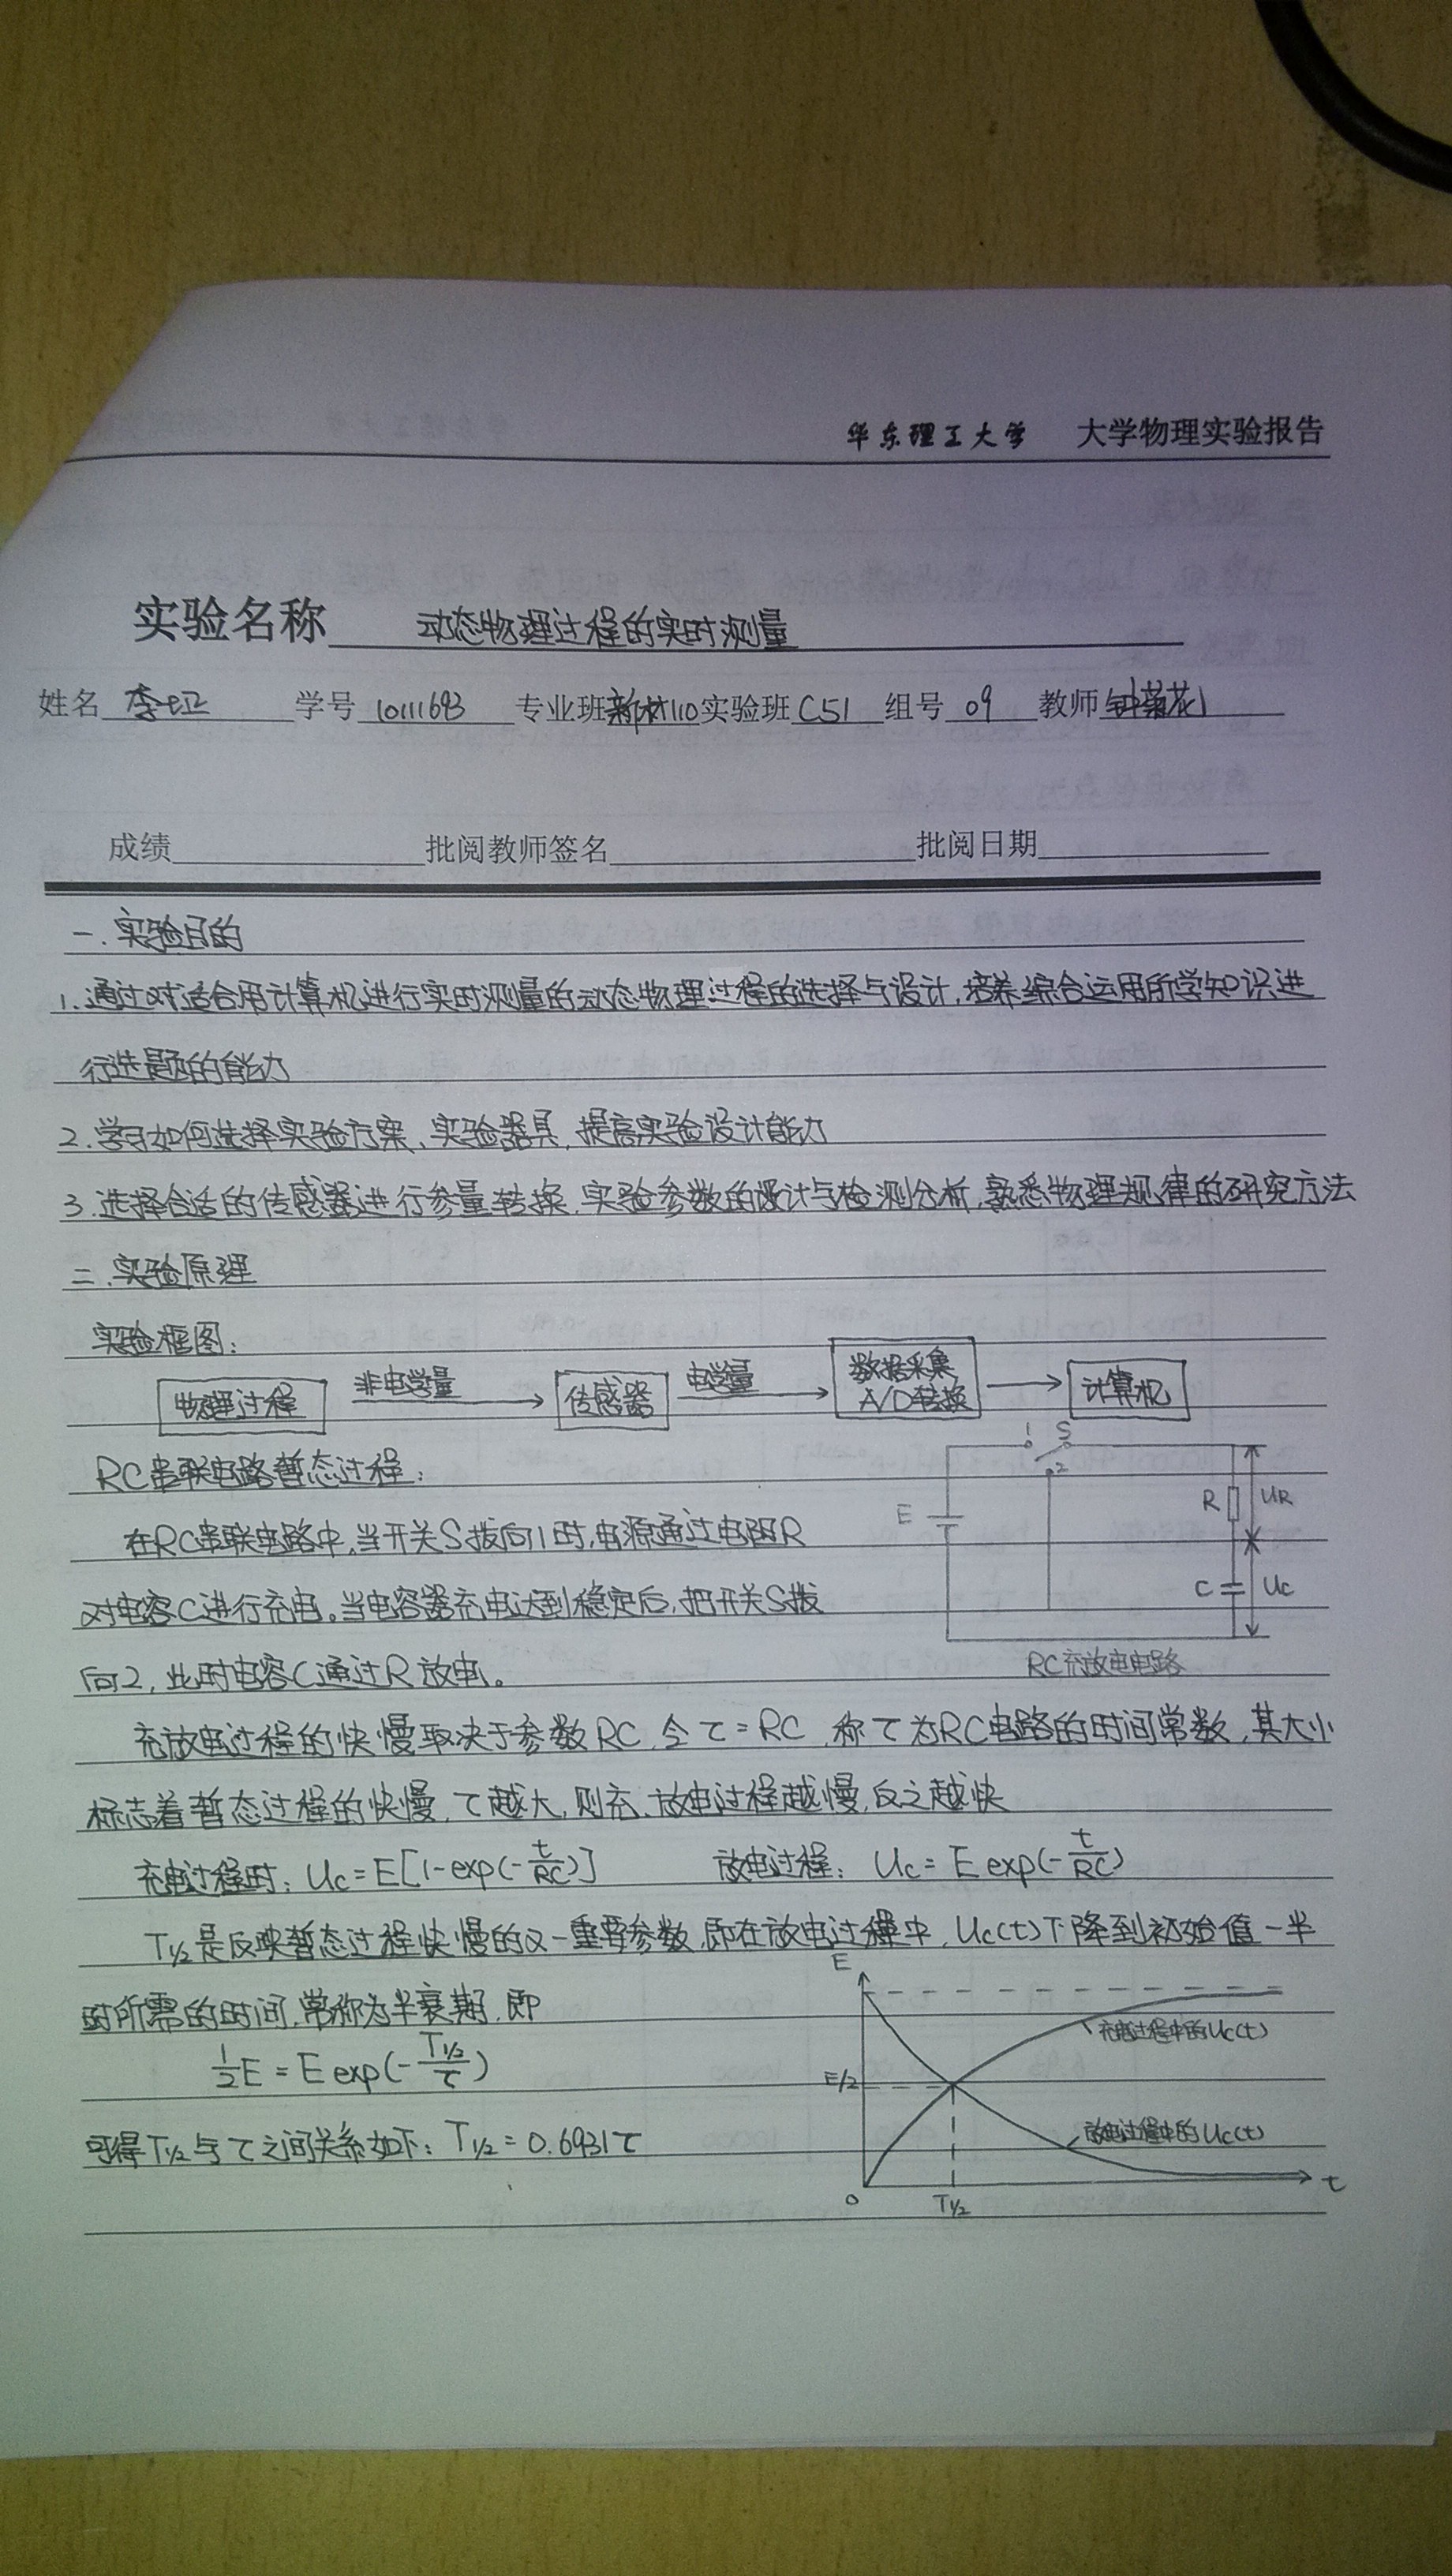 华东理工大学 大学物理实验报告
实验名称 动态物理过程的实时测量
姓名 李 学号 10111693 专业班 新材110 实验班 C51 组号 09 教师 钟菊花
成绩 批阅教师签名 批阅日期
一.实验目的
1.通过对适合用计算机进行实时测量的动态物理过程的选择与设计,培养综合运用所学知识进
行选题的能力
2.学习如何选择实验方案、实验器具,提高实验设计能力
3.选择合适的传感器进行参量转换,实验参数的设计与检测分析,熟悉物理规律的研究方法
二.实验原理
实验框图:
物理过程 非电学量 传感器 电学量 数据采集 A/D转换 计算机
RC串联电路暂态过程:
1 S
2
E R UR
C Uc
RC充放电电路
在RC串联电路中,当开关S拨向1时,电源通过电阻R
对电容C进行充电。当电容器充电达到稳定后,把开关S拨
向2,此时电容C通过R放电。
充放电过程的快慢取决于参数RC,令τ=RC,称τ为RC电路的时间常数,其大小
标志着暂态过程的快慢,τ越大,则充、放电过程越慢,反之越快
充电过程时:Uc=E[1-exp(-t/RC)] 放电过程:Uc=E exp(-t/RC)
T1/2是反映暂态过程快慢的又一重要参数,即在放电过程中,Uc(t)下降到初始值一半
时所需的时间,常称为半衰期,即
1/2E=E exp(-T1/2/τ)
可得T1/2与τ之间关系如下:T1/2=0.6931τ
E
充电过程中的Uc(t)
E/2
放电过程中的Uc(t)
0 T1/2 t